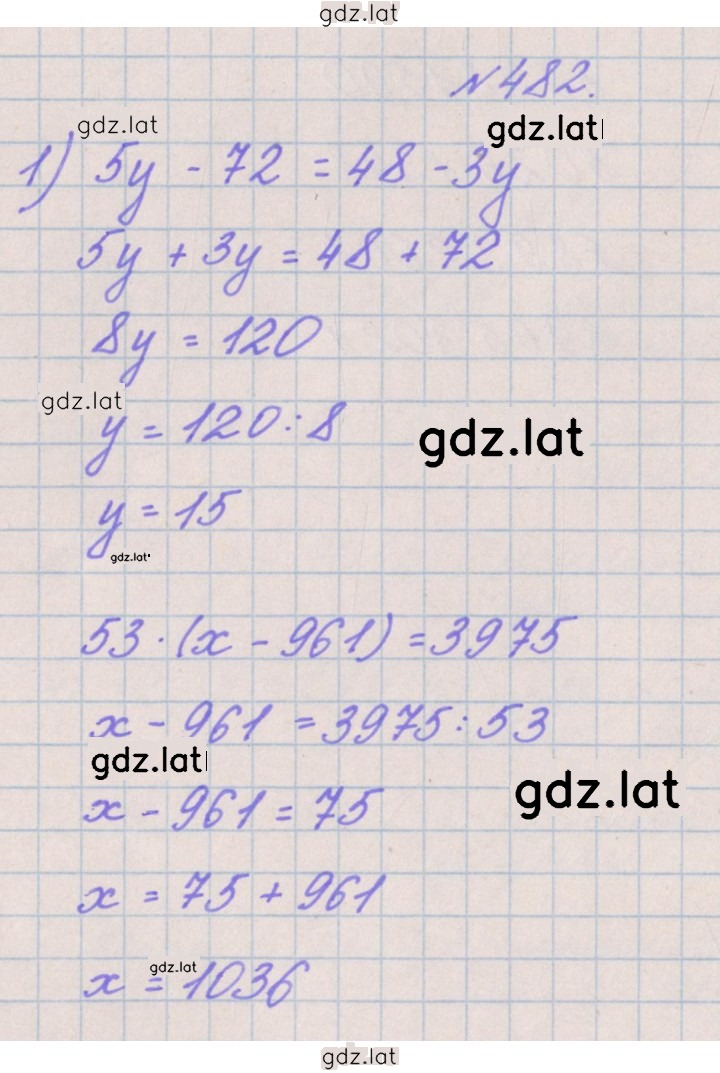 gdz.lat
№482.
gdz.lat
gdz.lat
1) 5y - 72 = 48 - 3y
5y + 3y = 48 + 72
8y = 120
gdz.lat
y = 120 : 8
gdz.lat
y = 15
gdz.lat
53 · (x - 961) = 3975
x - 961 = 3975 : 53
gdz.lat
gdz.lat
x - 961 = 75
x = 75 + 961
gdz.lat
x = 1036
gdz.lat